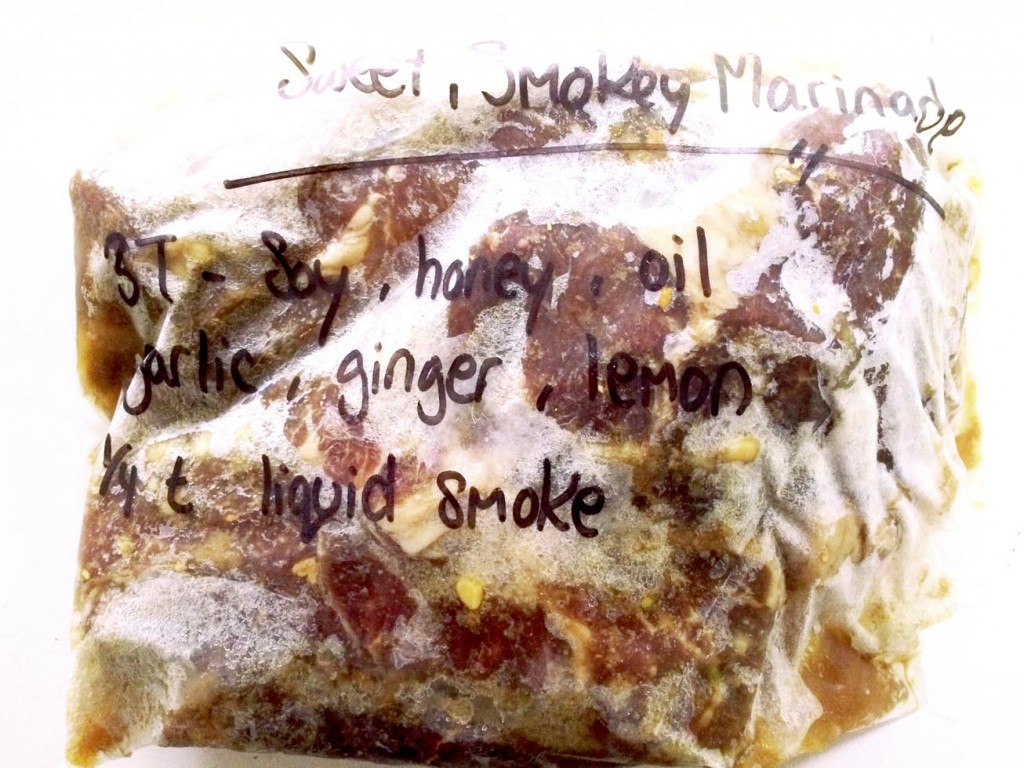 Sweet, Smokey Marinade
3T - Soy, honey, oil
garlic, ginger, lemon
1/4 t liquid smoke